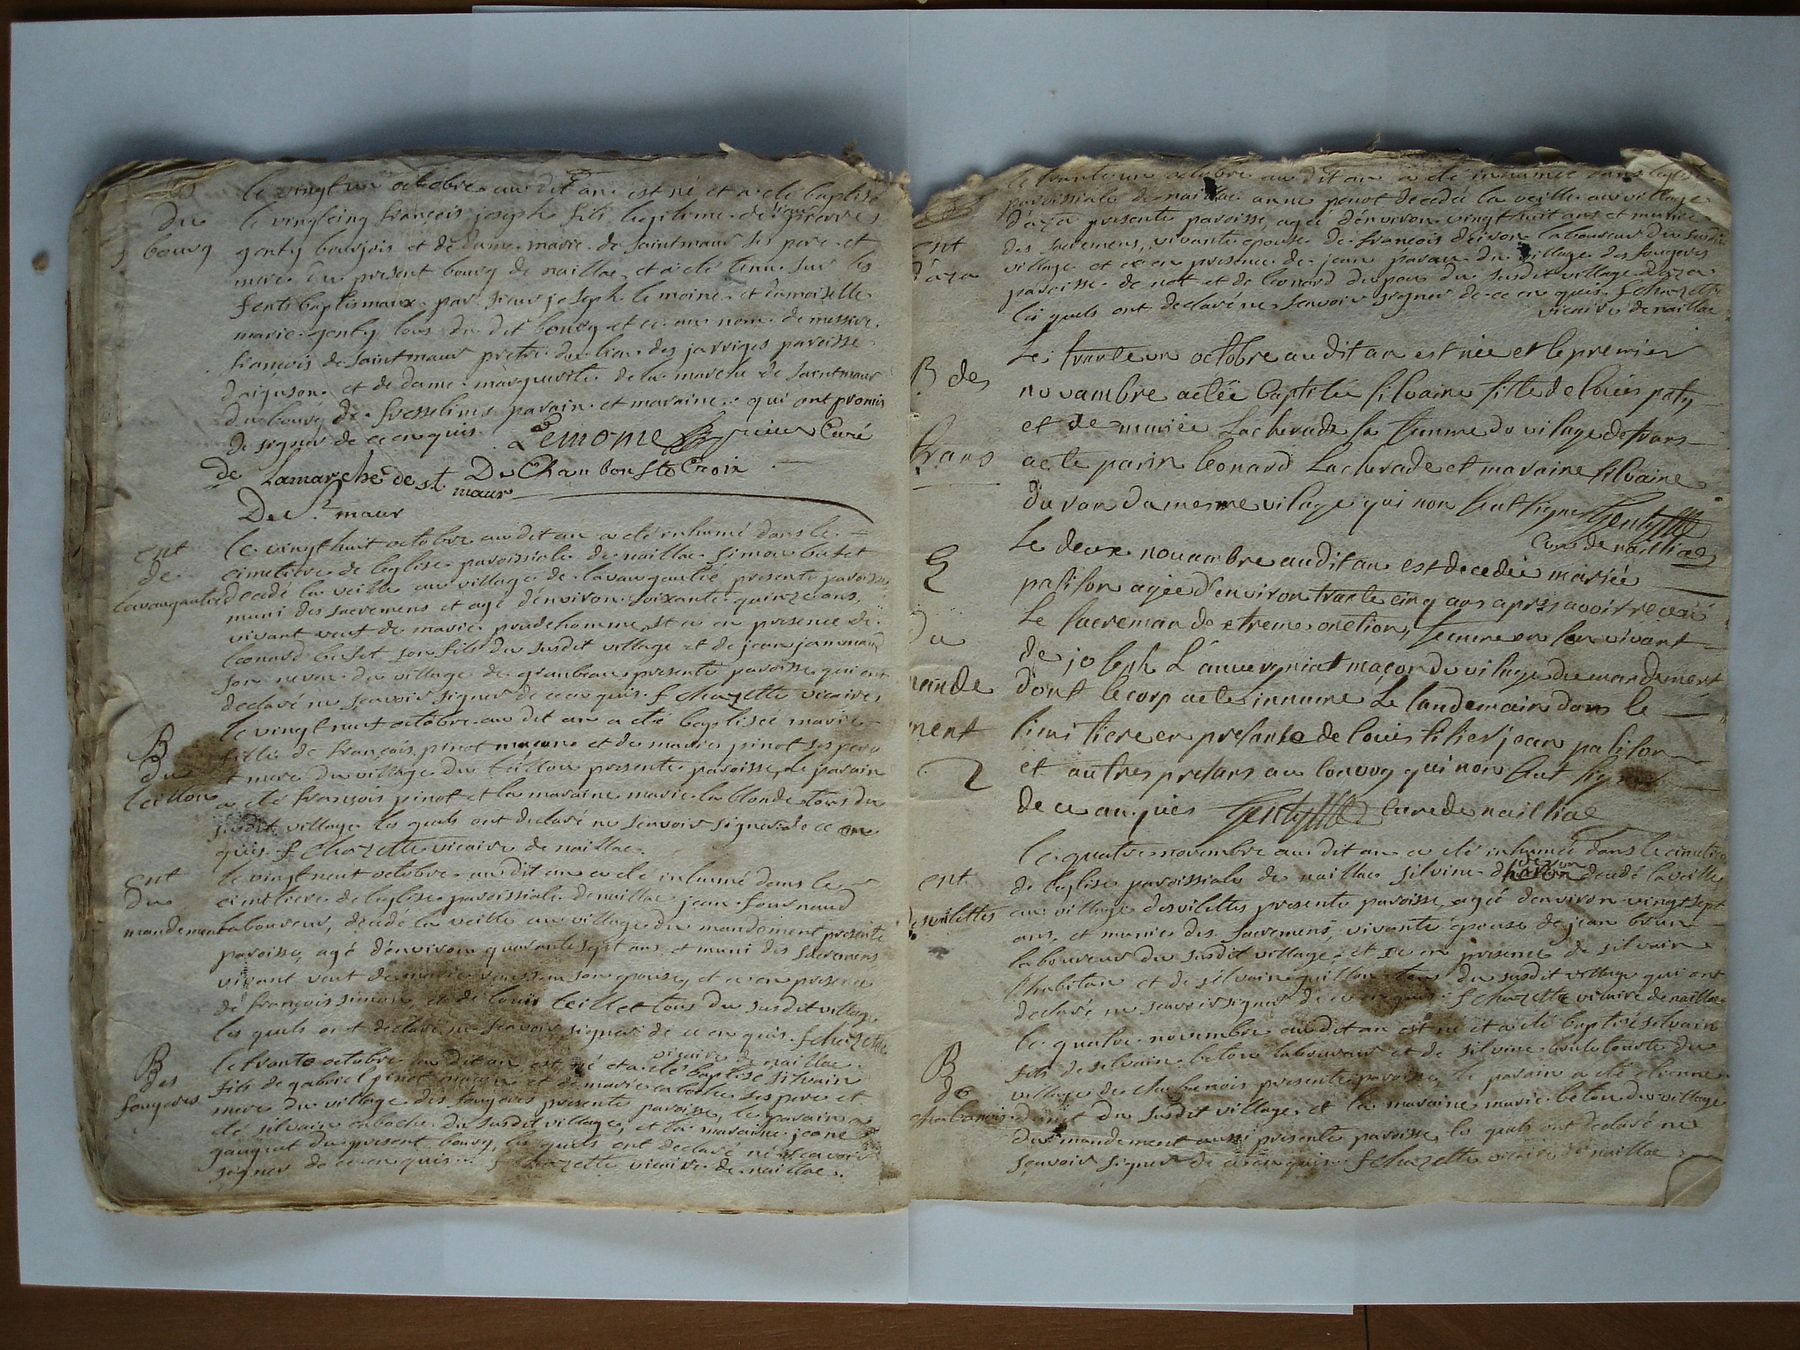 B
du
bourg
le vingt un octobre au dit an est né et a eté baptisé
le vingt cinq françois joseph fils legitime de pierre
genty bourjois et de dame marie de saintmaur ses pere et
mere du present bourg de naillac et a eté tenu sur les
fonts baptismaux par sieur joseph le moine et damoiselle
marie genty tous du dit bourg et ce au nom de messire
françois de saintmaur pretre du lieu des jarriges paroisse
d'aiguson et de dame marguerite de la marche de saintmaur
du bourg de fresselines parain et maraine qui ont promis
de signer de ce enquis Lemoine curé
de Lamarche de st maur Du Chambon Ste Croix
De st maur
ent
de
lavaugautié
le vingt huit octobre au dit an a eté inhumé dans le
cimetiere de l'eglise paroissiale de naillac simon
decedé la veille au village de lavaugautié presente paroisse
muni des sacremens et agé d'environ soixante quinze ans
vivant veuf de marie prudehomme et ce en presence de
leonard son fils du susdit village et de jean
son neveu du village de presente paroisse qui ont
declaré ne sçavoir signer de ce enquis f chazette vicaire
B
du
teillou
le vingt neuf octobre au dit an a eté baptisée marie
fille de françois pinot maçon et de marie pinot ses pere
et mere du village du teillou presente paroisse, le parain
a eté françois pinot et la maraine marie la blonde tous du
susdit village les quels ont declaré ne sçavoir signer de ce en
quis f chazette vicaire de naillac.
ent
du
mandement
le vingt neuf octobre au dit an a eté inhumé dans le
cimetiere de l'eglise paroissiale de naillac jean fournaud
laboureur, decedé la veille au village du mandement presente
paroisse, agé d'environ quarante sept ans et muni des sacremens
vivant son epouse, et ce en presence
de françois simon et de louis teillet tous du susdit village
les quels ont declaré ne sçavoir signer de ce enquis. f chazette
vicaire de naillac.
B
des
fougeres
le trante octobre au dit an est né et a eté baptisé silvain
fils de gabriel pinot maçon et de marie laboche ses pere et
mere du village des fougeres presente paroisse, le parain a
eté silvain laboche du susdit village, et la maraine jeane
gaugiat du present bourg, les quels ont declaré ne sçavoir
signer de ce enquis. f chazette vicaire de naillac.
le trante un octobre au dit an a eté inhumée dans l'eglise
paroissiale de naillac anne penot decedée la veille au village
d'aza presente paroisse, agée d'environ vingt huit ans et munie
ent
d'aza
des sacremens, vivante epouse de françois laboureur du susdit
village et ce en presence de jean du village des fougeres
paroisse de not et de leonard du susdit village d'aza
les quels ont declaré ne sçavoir signer de ce enquis f chazette
vicaire de naillac
B des
trans
Le trante un octobre au dit an est née et le premier
novambre a etée baptisée silvaine fille de louis paty
et de mariée Lacherade sa femme du vilage de trans
a ete parin leonard Lacherade et maraine silvaine
du ran du mesme vilage qui non seut signer Genty
Curé de nailliac
E
du
mande
ment
2
Le deux nouambre au dit an est decedée mariée
palison agée d'environ trante cinq ans apres avoir receü
Le sacreman de etreme onction, femme en son vivant
de joseph L'auuergniat maçon du vilage du mandement
dont le corp a ete innumé Le landemain dans le
simitiere en presance de louis jean palison
et autres presans au convoy qui non seut signer
de ce anquies Genty curé de nailliac
ent
desvilettes
le quatre novembre au dit an a eté inhumée dans le cimetiere
de l'eglise paroissiale de naillac silvine decedé la veille
au village desvilettes presente paroisse, agée d'environ vingt sept
ans, et munie des sacremens, vivante epouse de jean brun
laboureur du susdit village, et ce en presence de silvain
l'habitan et de silvain guillon tous du susdit village qui ont
declaré ne sçavoir signer de ce enquis. f chazette vicaire de naillac
B
de
chabanois
le quatre novembre au dit an est né et a eté baptisé silvain
fils de silvain belon laboureur et de silvine du
village de chabanois presente paroisse, le parain a eté etienne
du susdit village, et la maraine marie belon du village
du mandement aussi presente paroisse les quels ont declaré ne
sçavoir signer de ce enquis. f chazette vicaire de naillac